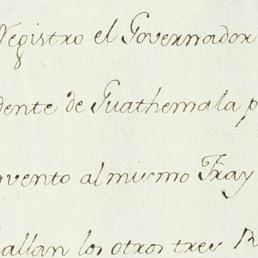 Registro el Governador
dente de Guathemala p
vento al mismo Fray
allan los otros tres R